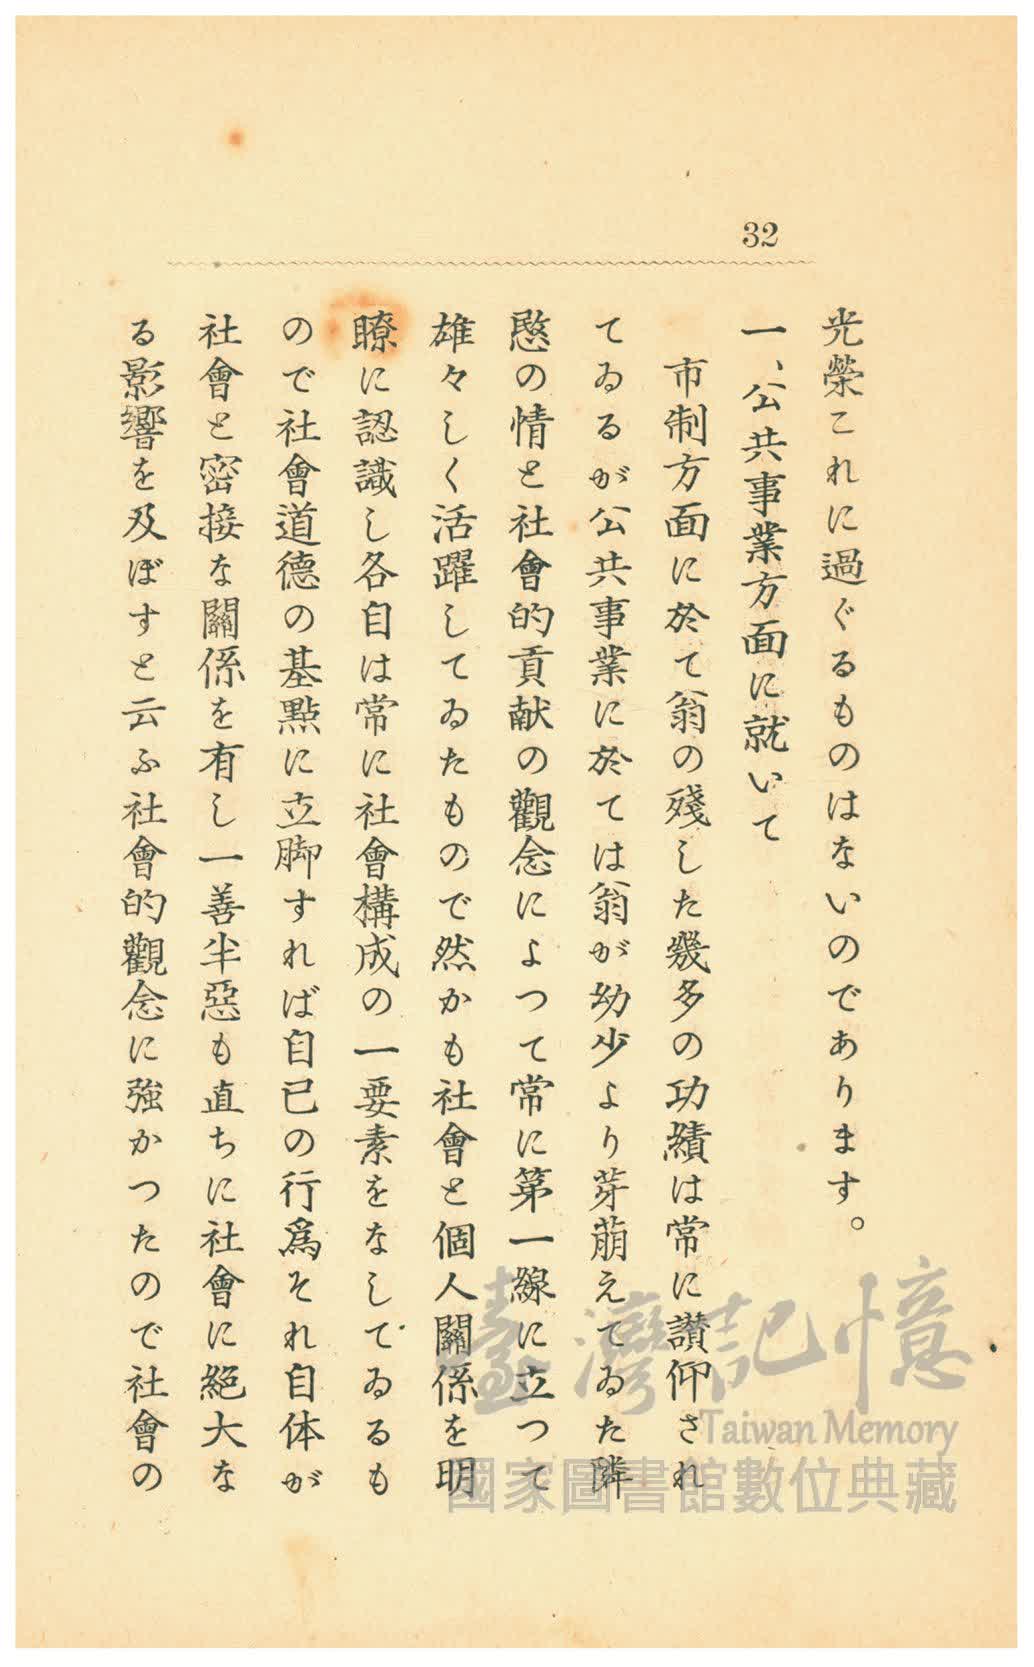 32
光榮これに過ぐるものはないのであります。
一、公共事業方面に就いて
市制方面に於て翁の殘した幾多の功績は常に讃仰され
てゐるが公共事業に於ては翁が幼少より芽萠えてゐた隣
愍の情と社會的貢献の觀念によつて常に第一線に立つて
雄々しく活躍してゐたもので然かも社會と個人關係を明
瞭に認識し各自は常に社會構成の一要素をなしてゐるも
ので社會道德の基點に立脚すれば自己の行爲それ自体が
社會と密接な關係を有し一善半惡も直ちに社會に絕大な
る影響を及ぼすと云ふ社會的觀念に強かつたので社會の
臺灣記憶
Taiwan Memory
國家圖書館數位典藏